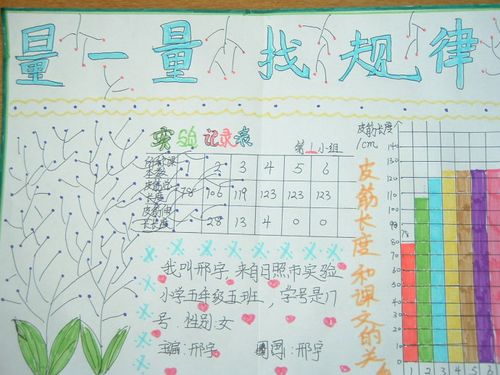 量一量 找规律
实验记录表
第1小组
1 2 3 4 5 6
长度 78 106 119 123 123 123
28 13 4 0 0
我叫邢宇,来自日照市实验
小学五年级五班,学号是17
号.性别:女
主编:邢宇 图:邢宇
皮筋长度
/cm
140
130
120
110
100
90
80
皮筋长度和课文的关
1 2 3 4 5 6